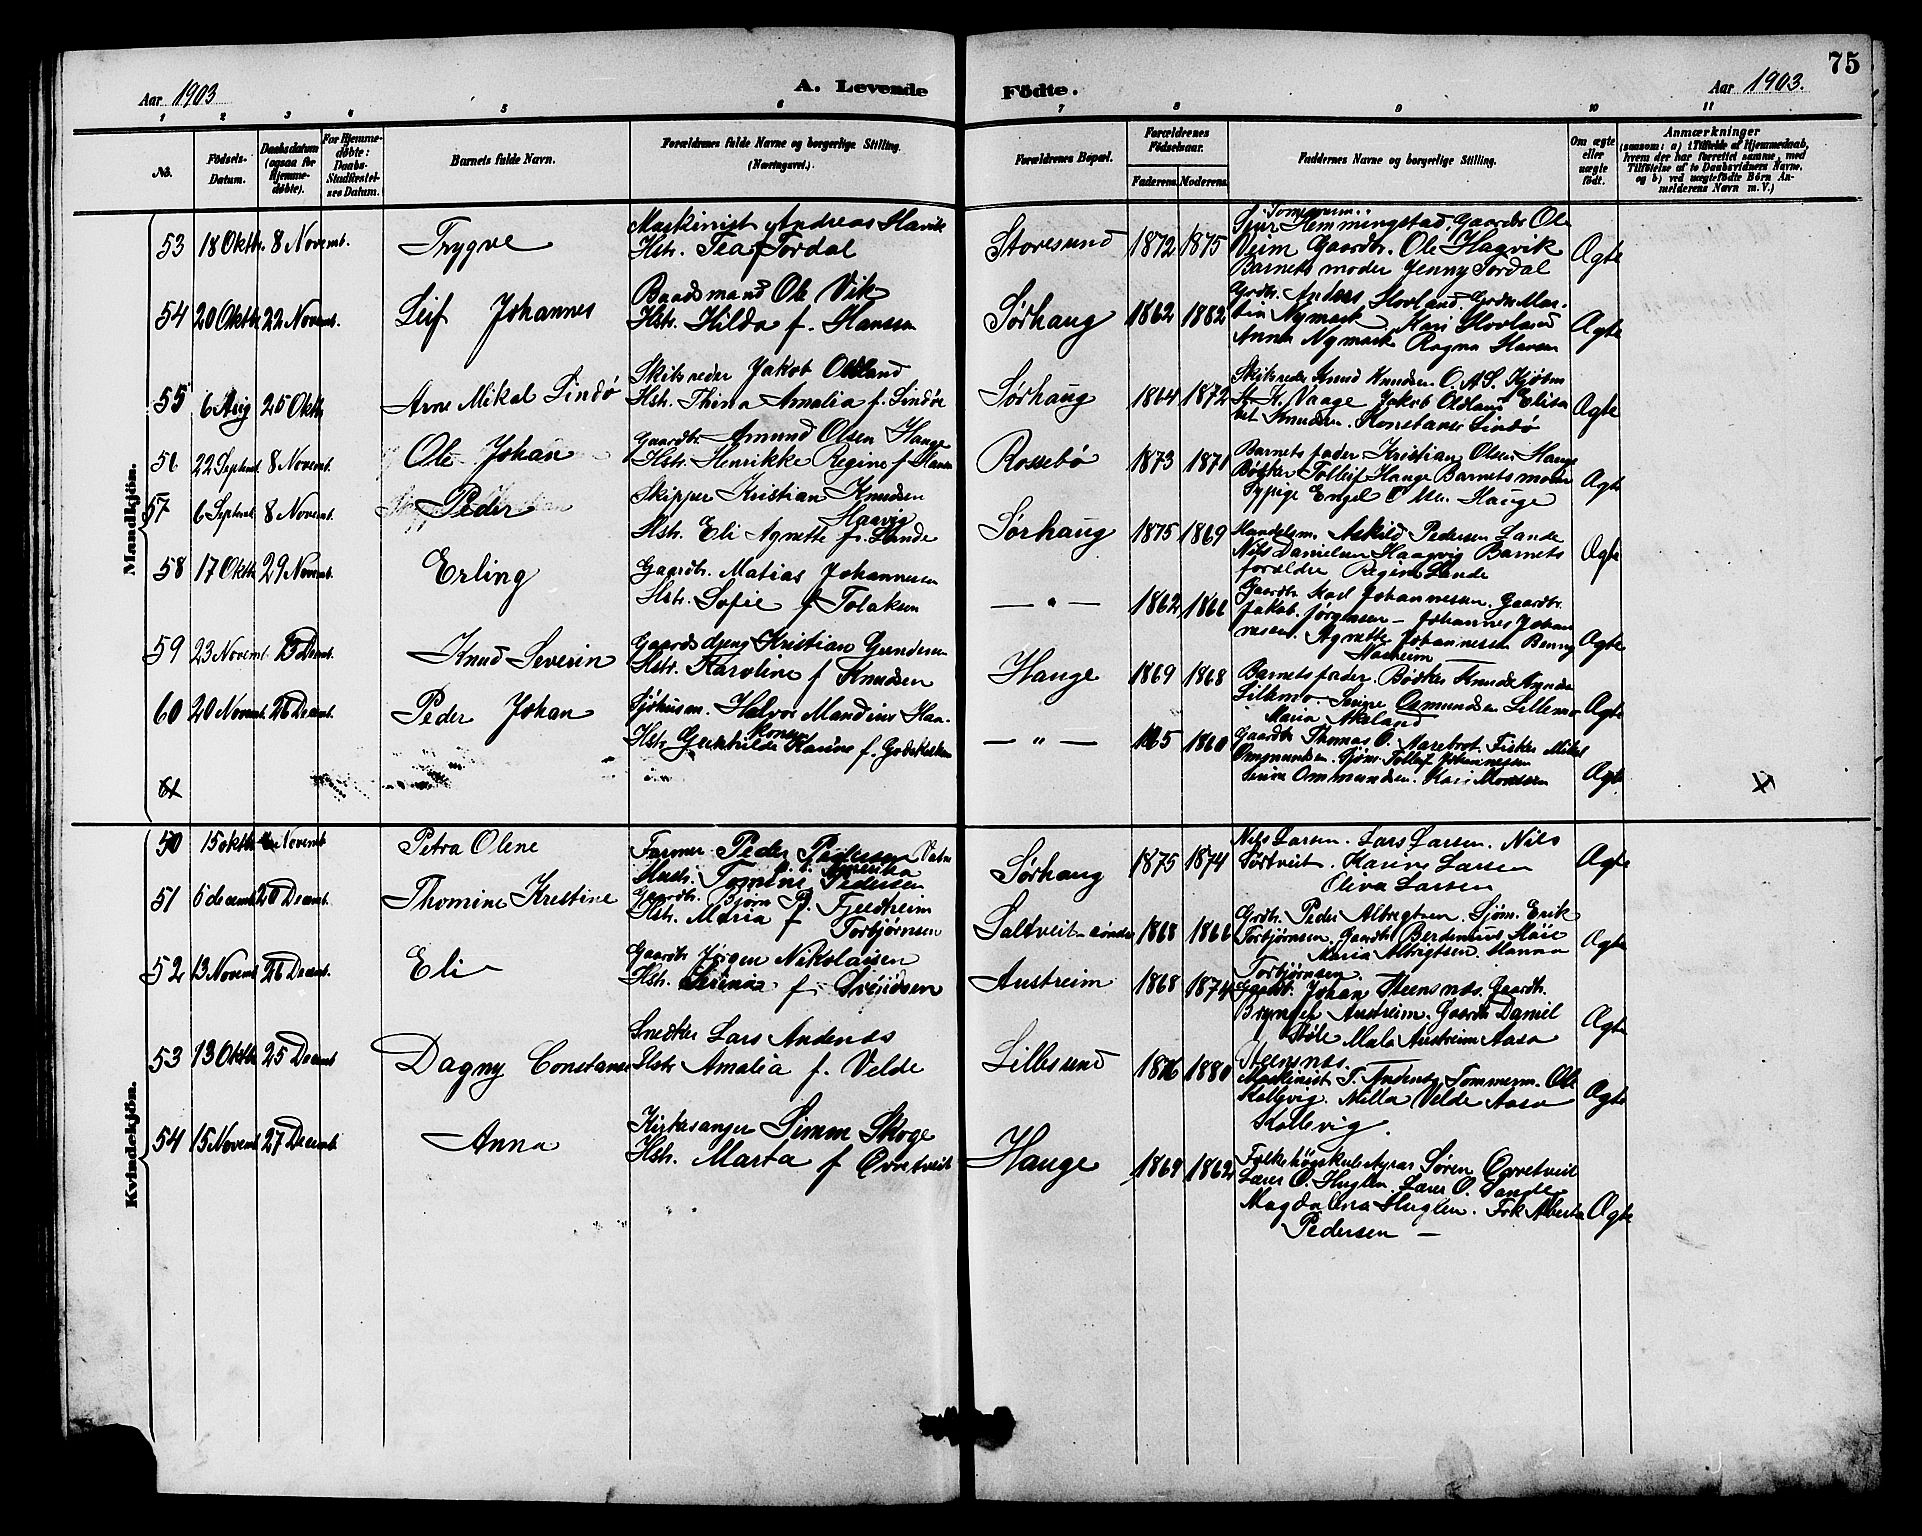 75
Aar 1903
A. Levende
Födte.
Aar 1903.
1 2 3 4 5 6 7 8 9 10 11
No.
Födsels-
Datum.
Daabsdatum
(ogsaa for
Hjemme-
döbte).
For Hjemme-
döbte:
Daabs-
Stadfæstel-
ses Datum.
Barnets fulde Navn.
Forældrenes fulde Navne og borgerlige Stilling.
(Næringsvei.)
Forældrenes Bopæl.
Forældrenes
Födselsaar.
Faderens. Moderens.
Faddernes Navne og borgerlige Stilling.
Om ægte
eller
uægte
födt.
Anmærkninger
(saasom: a) i Tilfælde af Hjemmedaab,
hvem der har forrettet samme, med
Tilföielse af to Daabsvidners Navne,
og b) ved uægtefödte Börn An-
melderens Navn m. V.)
Mandkjön.
53 18 Oktb. 8 Novemb. Trygve
Maskinist Andreas Havik
Hstr. Tea f Tordal
Storesund 1872 1875
Sjur Hemmingstad, Gaardbr Ole
Veim Gaardbr. Ole Hagvik
Barnets moder Jenny Tordal
Ægte
54 20 Oktb 22 Novemb. Leif Johannes
Baadsmand Ole Vik
Hstr. Hilda f. Hansen
Sørhaug 1862 1882
Grdbr. Anders Hovland, Grdbr Mar-
tin Nymark Kari Hovland
Anna Nymark Ragna Hansen
Ægte
55 6 Aug 25 Oktb Arne Mikal Lindø
Skibsreder Jakob Odland
Hstr. Thina Amalia f. Lindøe
Sørhaug 1864 1872
Skibsreder Knud Knudsen O. A. S. Kjøbm
H. Vaage Jakob Odland Elisa
bet Knudsen. Konstanse Lindø
Ægte
56 22 Septemb. 8 Novemb. Ole Johan
Gaardbr. Amund Olsen Hauge
Hstr. Henrikke Regine f Hansen
Rossebø 1873 1871
Barnets fader Kristian Olsen Hauge
Bødker Tolleif Hauge Barnets moder
Sypige Engel Olsen Hauge
Ægte
57 6 Septemb. 8 Novemb. Peder
Skipper Kristian Knudsen
Haavig
Hstr. Eli Agnette f. Lande
Sørhaug 1875 1869
Handelsm. Askild Pedersen Lande
Nils Danielsen Haagvig Barnets
forældre Regine Lande
Ægte
58 17 Oktb 29 Novemb. Erling
Gaardbr. Matias Johannesen
Hstr. Sofie f Tolaksen
— " — 1862 1866
Gaardbr Karl Johannesen. Gaardbr.
Jakob Jørgensen – Johannes Johan
nesen. Agnette Johannessen Benny
Nordheim
Ægte
59 23 Novemb. 13 Decemb. Knud Severin
Gaardsdreng Kristian Gundersen
Hstr. Karoline f Knudsen
Hauge 1869 1868
Barnets fader. Bødker Knud
Lillemo. Serine Osmundsen Lillemo
Maria Aksland
Ægte
60 20 Novemb. 26 Decemb. Peder Johan
Sjøhusm. Halvor Mandius Haa-
konsen
Hstr. Gunhilde Karine f. Godskalksen
— " — 1865 1860
Gaardbr Thomas O. Aarebrot. Fisker Mikal
Ommundsen. Sjøm. Tollef Johannessen
Serine Ommundsen. Kari Monssen
Ægte
61
Kvindekjön.
50 15 oktb. Novemb Petra Olene
Farmer Peder Pedersen Vatne
Amerika
Hustr. Tomine Pedersen
Sørhaug 1875 1874
Nils Larsen. Lars Larsen. Nils
Sørtveit. Karine Larsen
Oliva Larsen
Ægte
51 6 decemb 20 Decemb. Thomine Kristine
Gaardbr. Bjørn P. Fjeldheim
Hstr. Maria f Torbjørnsen
Saltveit søndre 1868 1866
Grdbr. Peder Albregtsen. Sjøm. Erik
Torbjørnsen, Gaardbr Berdinius
Maria Albrigtsen. Hanna
Torbjørnsen.
Ægte
52 13 Novemb 26 Decemb. Eli
Gaardbr Jørgen Nikolaisen
Hstr. Serina f Sveidsen
Austreim 1868 1874
Gaardbr. Johan Steensnæs. Gaardbr.
Brynjel Austreim. Gaardbr Daniel
Støle Mala Austreim Aasa
Steensnæs.
Ægte
53 13 Oktb 25 Decemb Dagny Constanse
Snedker Lars Andenæs
Hstr Amalia f. Velde
Lillesund 1876 1880
Maskinist T. Andenæs, Tømmerm. Ole
Kollevig. Milla Velde Aasa
Kollevig.
Ægte
54 15 Novemb 27 Decemb Anna
Kirkesanger Simon Skoge
Hstr. Marta f Øvretveit
Hauge 1864 1862
Folkehøgskulestyrar Søren Øvretveit
Lærer O. Huglen. Lærer O. Sande
Magdalena Huglen. Frk Alberta
Pedersen –
Ægte